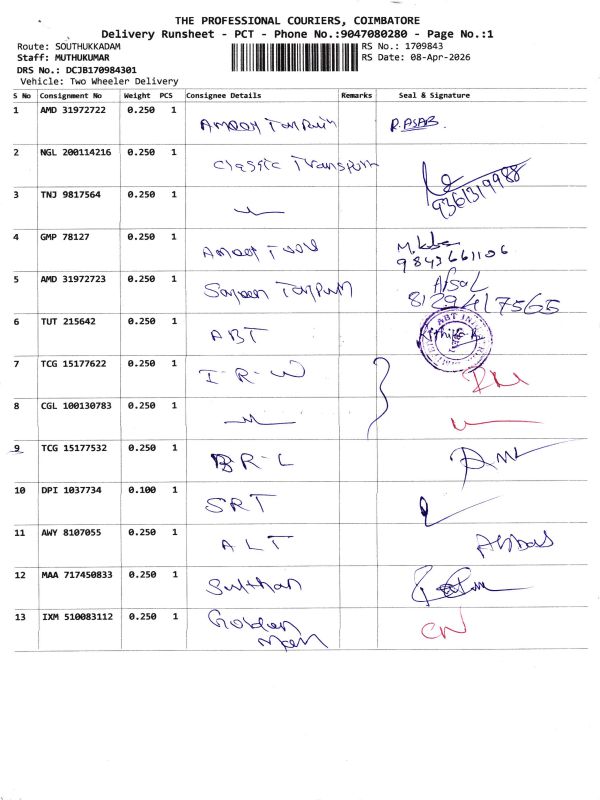 THE PROFESSIONAL COURIERS, COIMBATORE
Delivery Runsheet - PCT - Phone No.:9047080280 - Page No.:1
Route: SOUTHUKKADAM RS No.: 1709843
Staff: MUTHUKUMAR RS Date: 08-Apr-2026
DRS No.: DCJB170984301
Vehicle: Two Wheeler Delivery
S No Consignment No Weight PCS Consignee Details Remarks Seal & Signature
1 AMD 31972722 0.250 1 R. ASAB
2 NGL 200114216 0.250 1 Classic Transport
9361319988
3 TNJ 9817564 0.250 1
4 GMP 78127 0.250 1
9843661106
5 AMD 31972723 0.250 1 Afsal
8129417565
6 TUT 215642 0.250 1 ABT
7 TCG 15177622 0.250 1 I-R-W
8 CGL 100130783 0.250 1
9 TCG 15177532 0.250 1 B-R-L
10 DPI 1037734 0.100 1 SRT
11 AWY 8107055 0.250 1 ALT Abbas
12 MAA 717450833 0.250 1 Sulthan
13 IXM 510083112 0.250 1 Golden CN